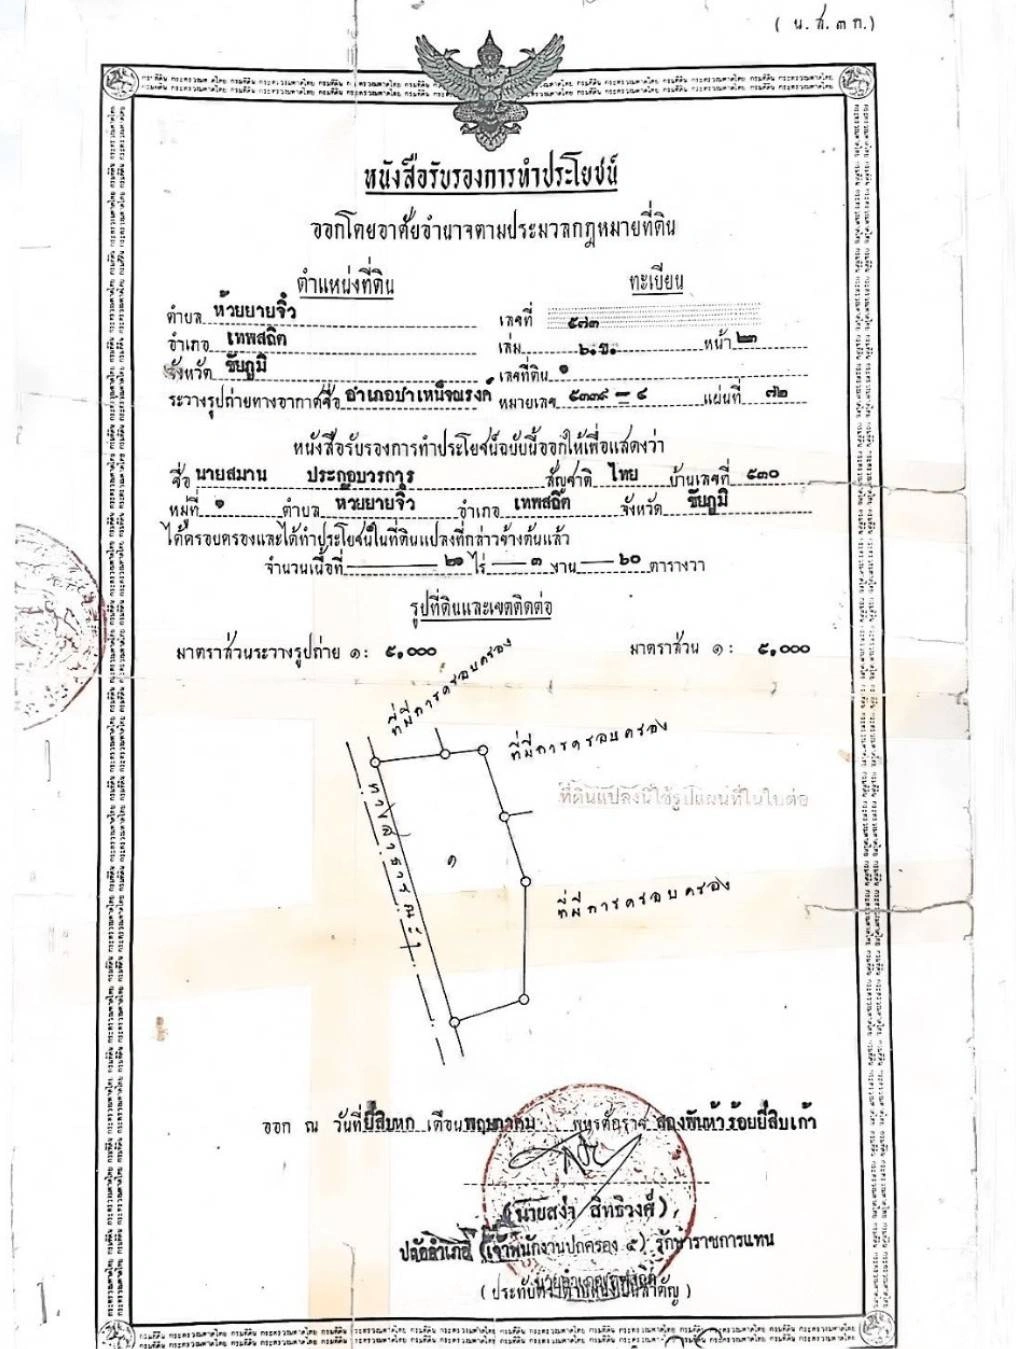 ( น.ส.๓ ก.)
หนังสือรับรองการทำประโยชน์
ออกโดยอาศัยอำนาจตามประมวลกฎหมายที่ดิน
ตำแหน่งที่ดิน ทะเบียน
ตำบล ห้วยยายจิ๋ว เลขที่ ๕๗๓
อำเภอ เทพสถิต เล่ม ๖.ข. หน้า ๒๓
จังหวัด ชัยภูมิ เลขที่ดิน ๑
ระวางรูปถ่ายทางอากาศชื่อ อำเภอบำเหน็จณรงค์ หมายเลข ๕๓๓๙ – ๔ แผ่นที่ ๗๒
หนังสือรับรองการทำประโยชน์ฉบับนี้ออกให้เพื่อแสดงว่า
ชื่อ นายสมาน ประกอบวรการ สัญชาติ ไทย บ้านเลขที่ ๕๓๐
หมู่ที่ ๑ ตำบล ห้วยยายจิ๋ว อำเภอ เทพสถิต จังหวัด ชัยภูมิ
ได้ครอบครองและได้ทำประโยชน์ในที่ดินแปลงที่กล่าวข้างต้นแล้ว
จำนวนเนื้อที่ ๒๑ ไร่ ๓ งาน ๖๐ ตารางวา
รูปที่ดินและเขตติดต่อ
มาตราส่วนระวางรูปถ่าย ๑: ๕,๐๐๐ มาตราส่วน ๑ : ๕,๐๐๐
ที่มีการครอบครอง
ที่มีการครอบครอง
ที่ดินแปลงนี้ใช้รูปแผนที่ในใบต่อ
ทางสาธารณะฯ
๑
ที่มีการครอบครอง
ออก ณ วันที่ ยี่สิบหก เดือน พฤษภาคม พุทธศักราช สองพันห้าร้อยยี่สิบเก้า
(นายสง่า สิทธิวงศ์)
ปลัดอำเภอ (เจ้าพนักงานปกครอง ๕) รักษาราชการแทน
นายอำเภอเทพสถิต
(ประทับตราตำแหน่งเป็นสำคัญ)